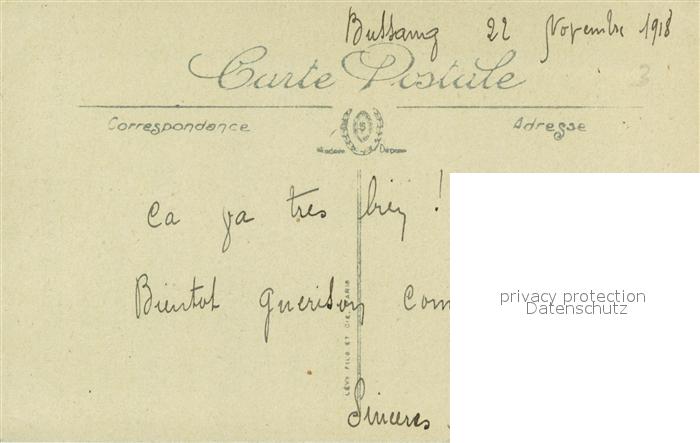 Bussang 22 Novembre 1918
Carte Postale
3
Correspondance
Adresse
Ca va tres bien !
Bientot guerison com
privacy protection
Datenschutz
LÉVY FILS ET CIE PARIS
Sinceres